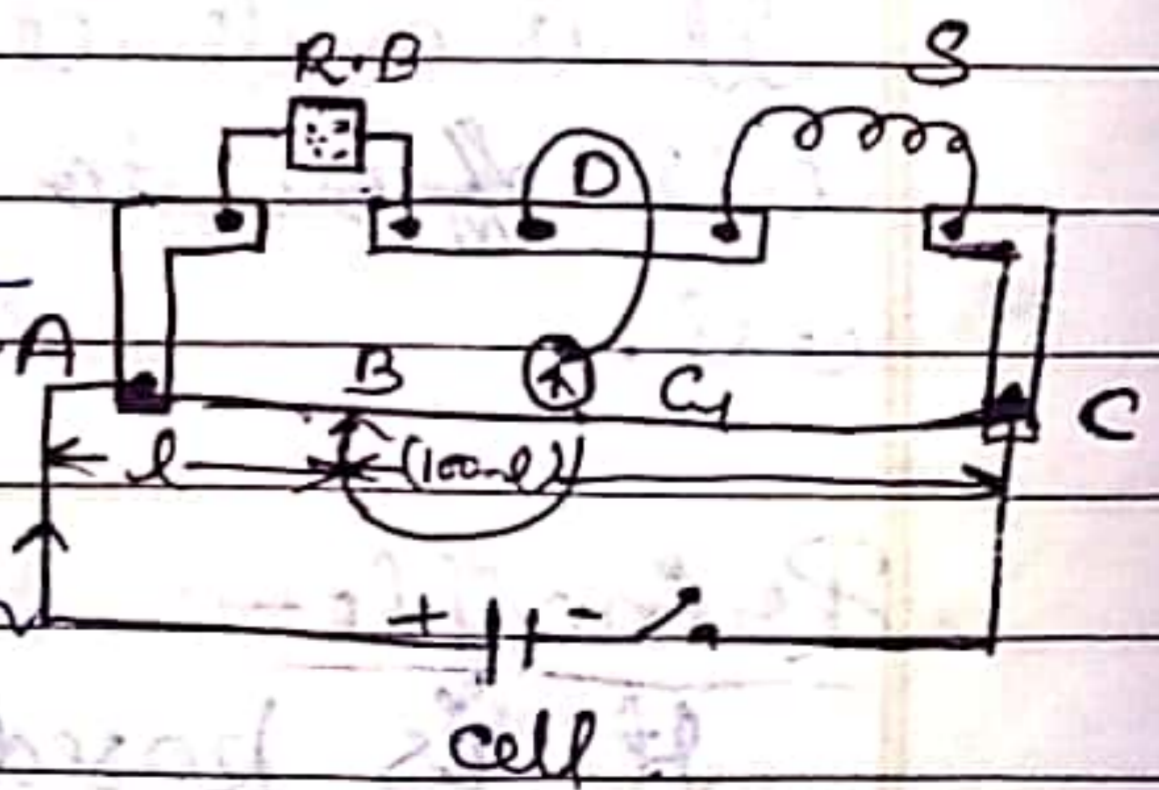 R.B
S
D
A
B
C
l
(100-l)
+
-
cell